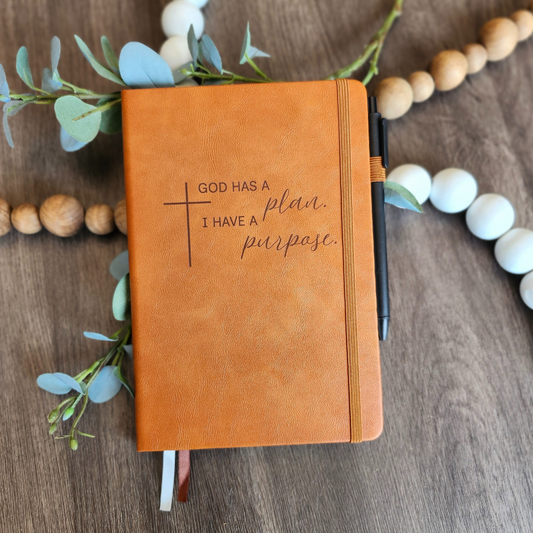 GOD HAS A
plan.
I HAVE A
purpose.